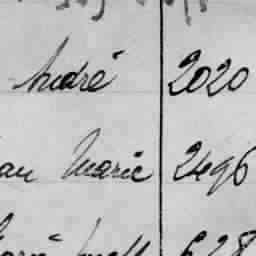 André 2020
an Marie 2496
628